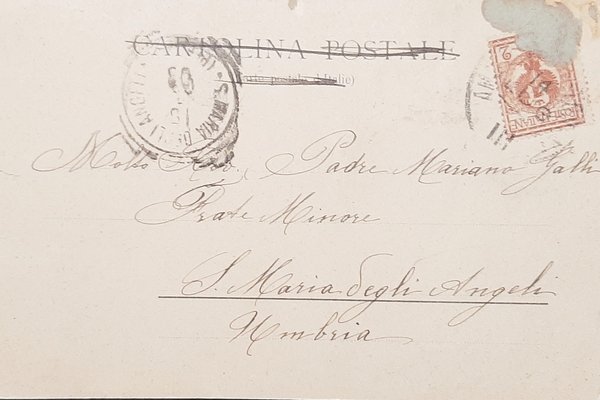 CARTOLINA POSTALE
(Carte postale d'Italie)
S. MARIA DEGLI ANGELI
03
2
Molto Rev. Padre Mariano Galli
Frate Minore
S. Maria degli Angeli
Umbria